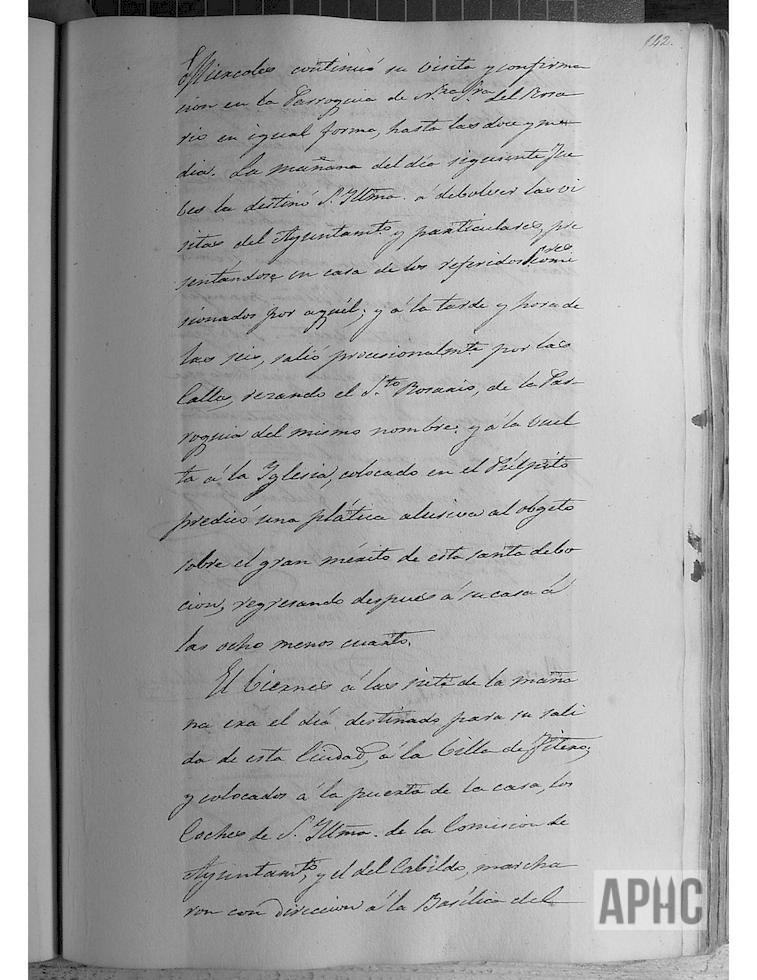 142.
Miercoles continuó su visita y confirma
cion en la Parroquia de Ntra Sra. del Rosa
rio en igual forma, hasta las doce y me-
dia. La mañana del dia siguiente Jue
bes la destinó S. Illma. á debolver las vi
sitas del Ayuntamto. y particulares, pre
sentándose en casa de los referidos Sres. comi
sionados por aquél; y á la tarde y hora de
las seis, salió procesionalmte. por las
Calles, rezando el Sto. Rosario, de la Par-
roquia del mismo nombre: y á la buel
ta á la Yglesia, colocado en el Púlpito
predicó una plática alusiva al objeto
sobre el gran mérito de esta santa debo
cion, regresando despues á su casa á
las ocho menos cuarto.
El Biernes á las siete de la maña
na era el dia destinado para su sali
da de esta Ciudad, á la Billa de Fitero;
y colocados á la puerta de la casa, los
Coches de S. Illma. de la Comision de
Ayuntamto., y el del Cabildo, marcha
ron con direccion á la Basílica del
APHC